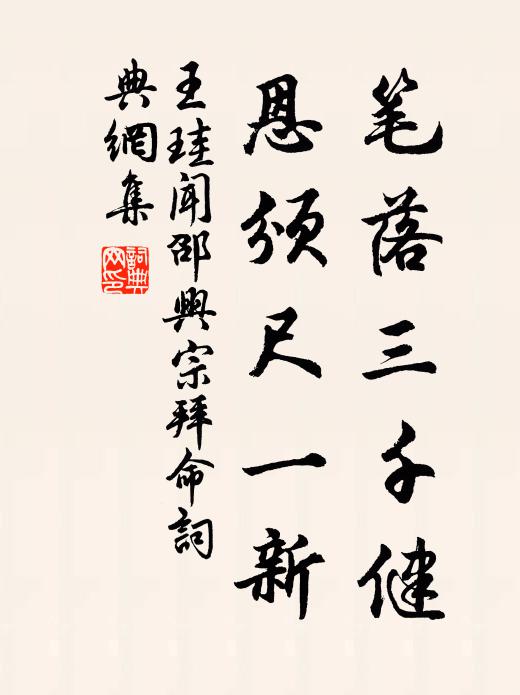 笔落三千健
恩颁尺一新
王珪闻邵兴宗拜命詞
典網集
詞典
网印